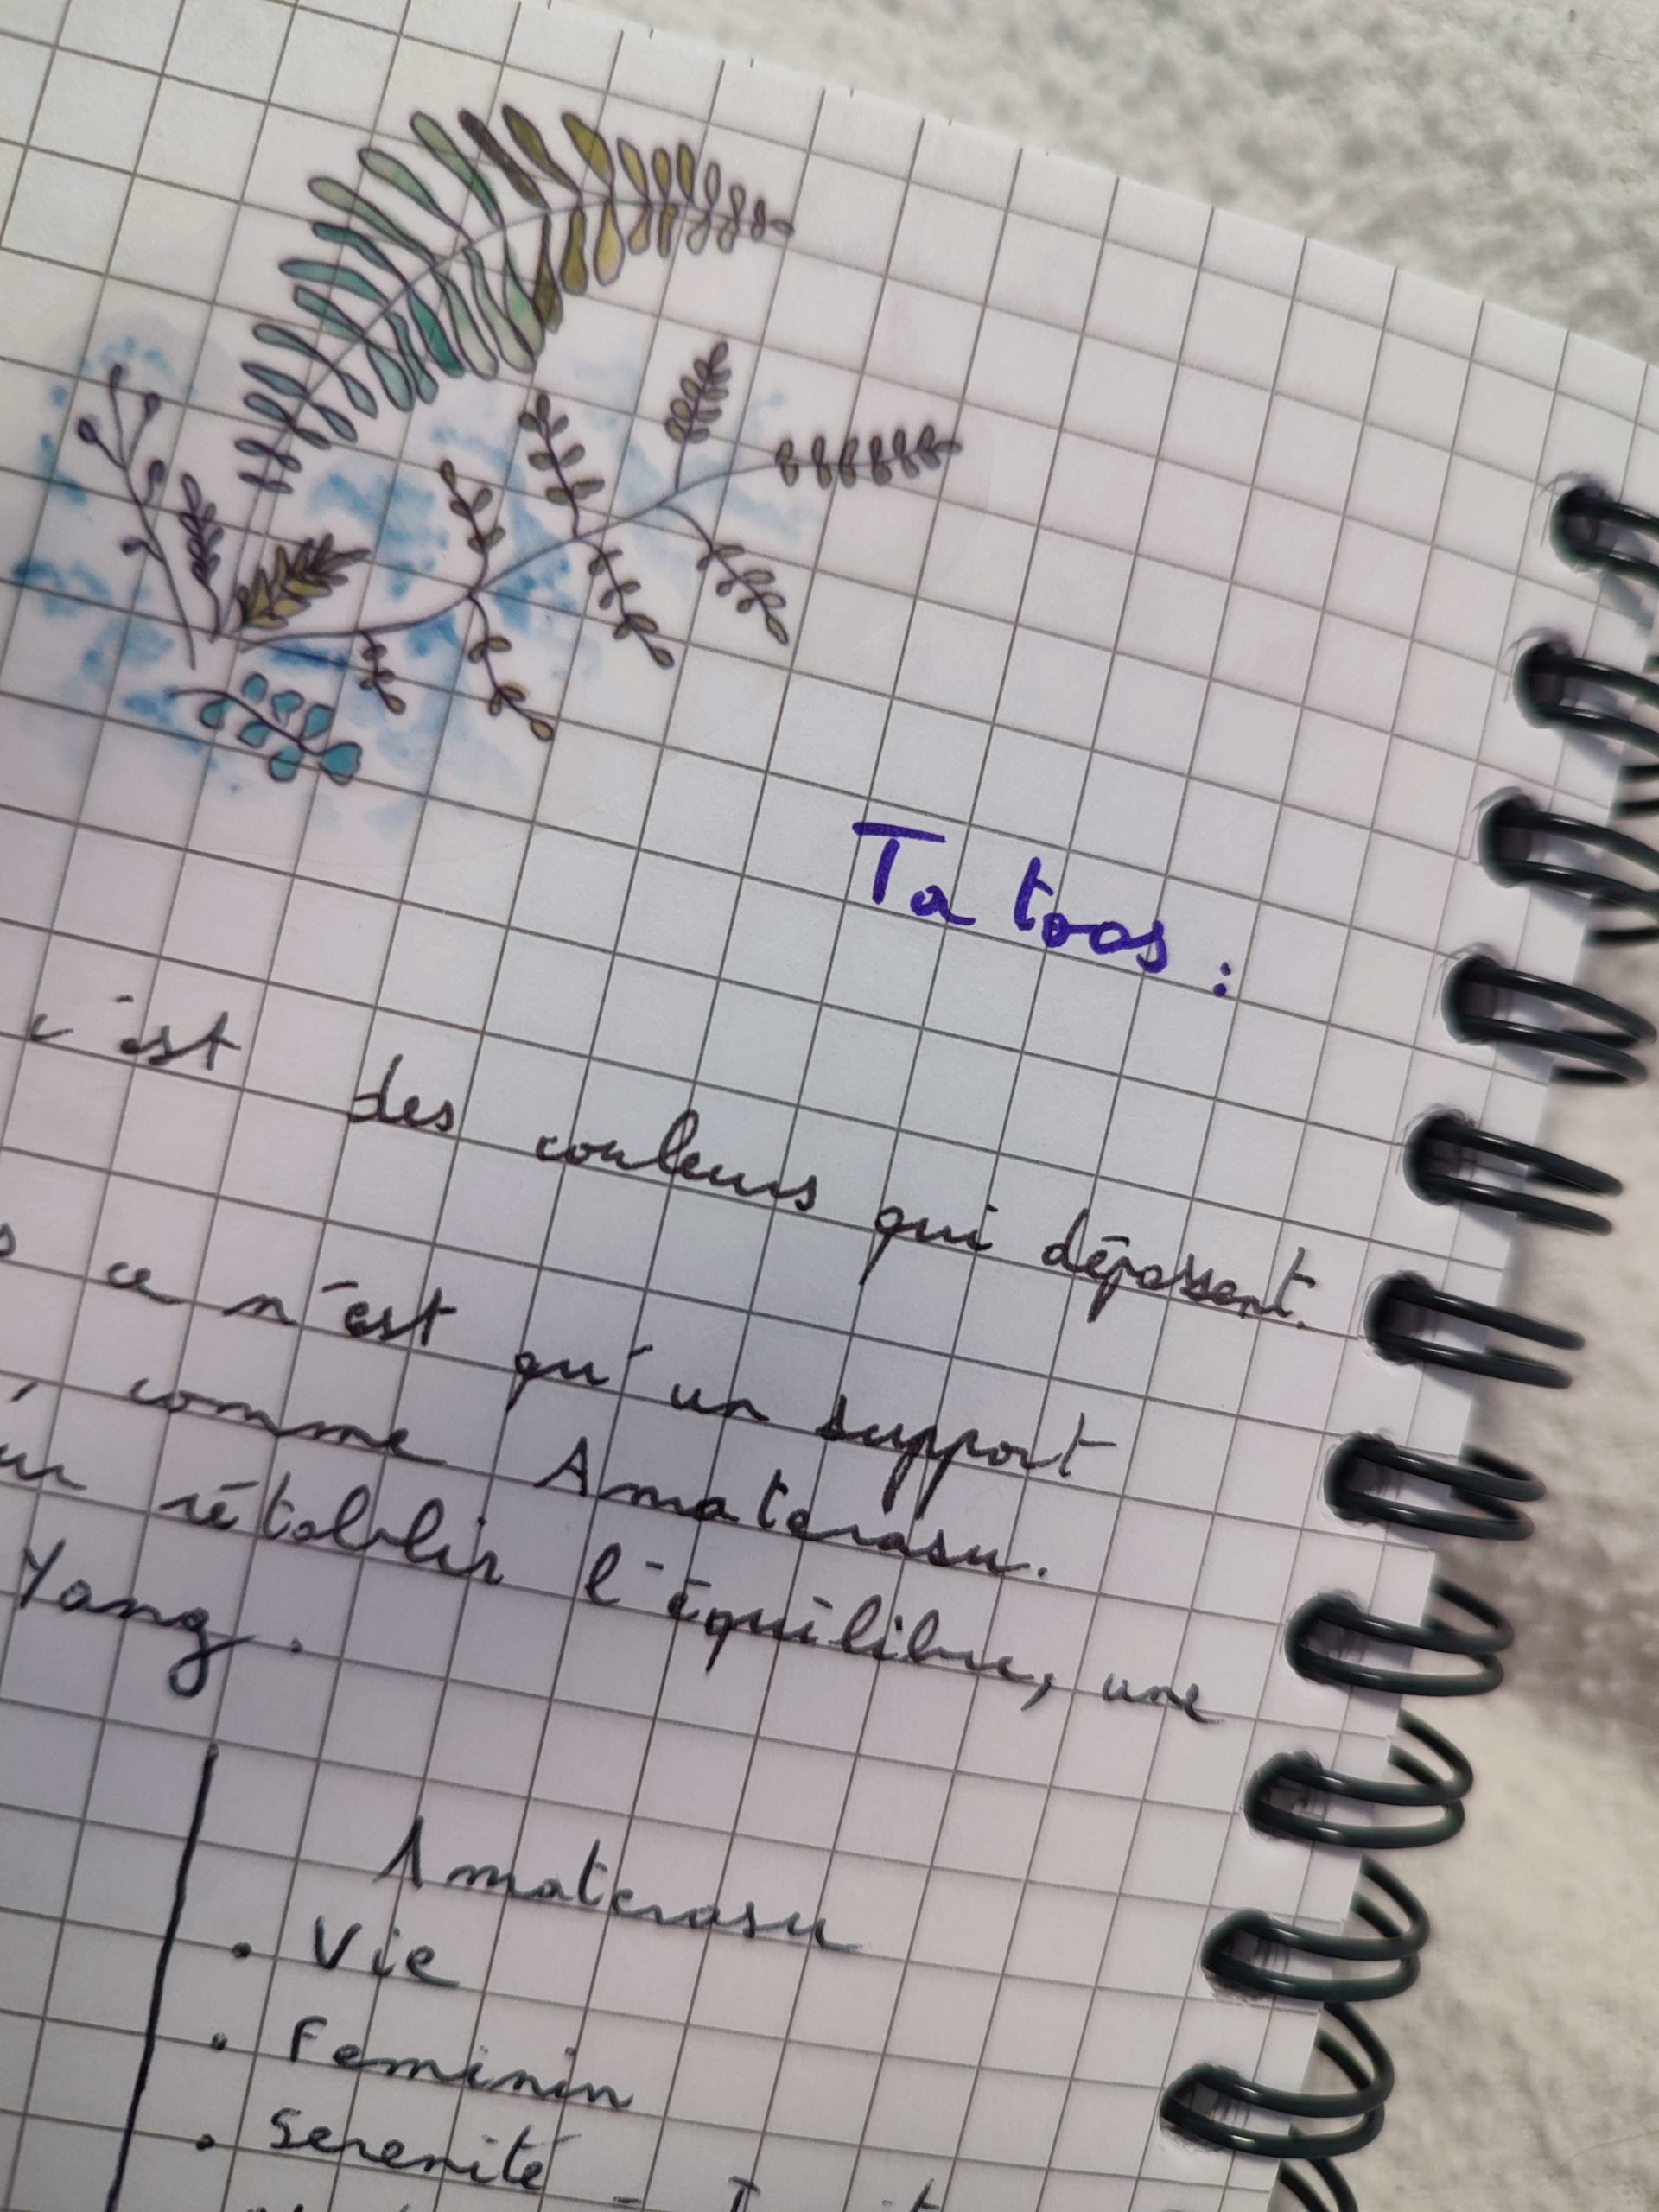 Tatoos :
c'est des couleurs qui dépassent.
ce n'est qu'un support
, comme Amaterasu.
rétablir l'équilibre, une
Yang.
Amaterasu
• Vie
• Feminin
• Serenité